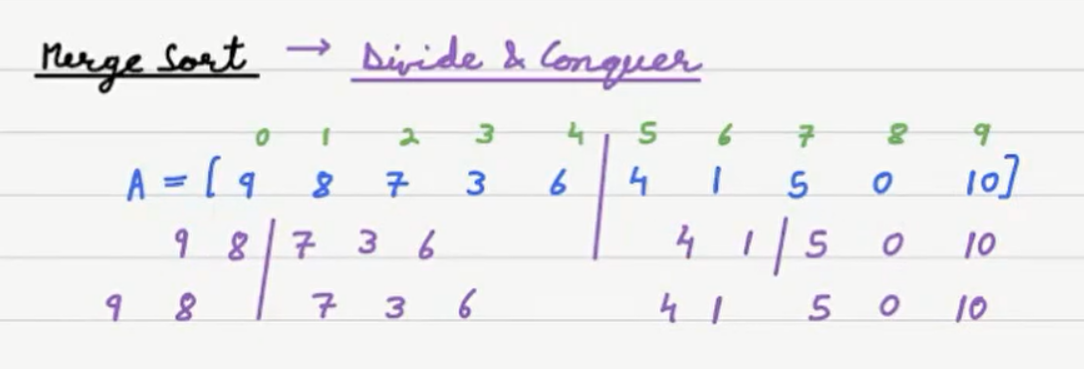 Merge Sort → Divide & Conquer
0 1 2 3 4 5 6 7 8 9
A = [ 9 8 7 3 6 | 4 1 5 0 10 ]
9 8 | 7 3 6 4 1 | 5 0 10
9 8 | 7 3 6 4 1 5 0 10